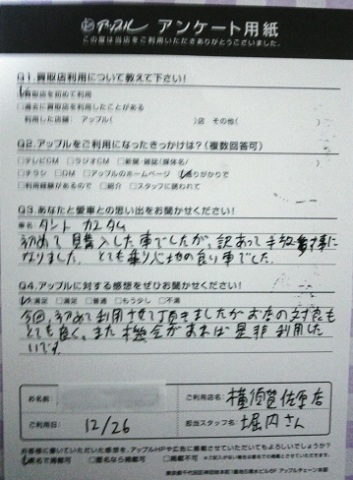 アップル アンケート用紙
この度は当店をご利用いただきありがとうございました。
Q1.買取店利用について教えて下さい!
買取店を初めて利用
□過去に買取店を利用したことがある
利用した店舗 アップル( )店 その他( )
Q2.アップルをご利用になったきっかけは?(複数回答可)
□テレビCM □ラジオCM □新聞・雑誌(媒体名/ )
□チラシ □DM □アップルのホームページ 通りがかりで
□利用経験があるので □紹介 □スタッフに誘われて
Q3.あなたと愛車との思い出をお聞かせください!
車名: タント カスタム
初めて購入した車でしたが、訳あって手放す事に
なりました。とても乗り心地の良い車でした。
Q4.アップルに対する感想をぜひお聞かせください!
大満足 □満足 □普通 □もう少し □不満
今回、初めて利用させて頂きましたがお店の対応も
とても良く、また機会があれば是非利用した
いです。
お名前
ご利用店名 横須賀佐原店
ご利用日 12/26
担当スタッフ名 堀内さん
お客様に書いていただいた感想を、アップルHPや広告に掲載させていただいてもよろしいでしょうか?
名で掲載可 □匿名なら掲載可 □掲載不可
アップルチェーン本部